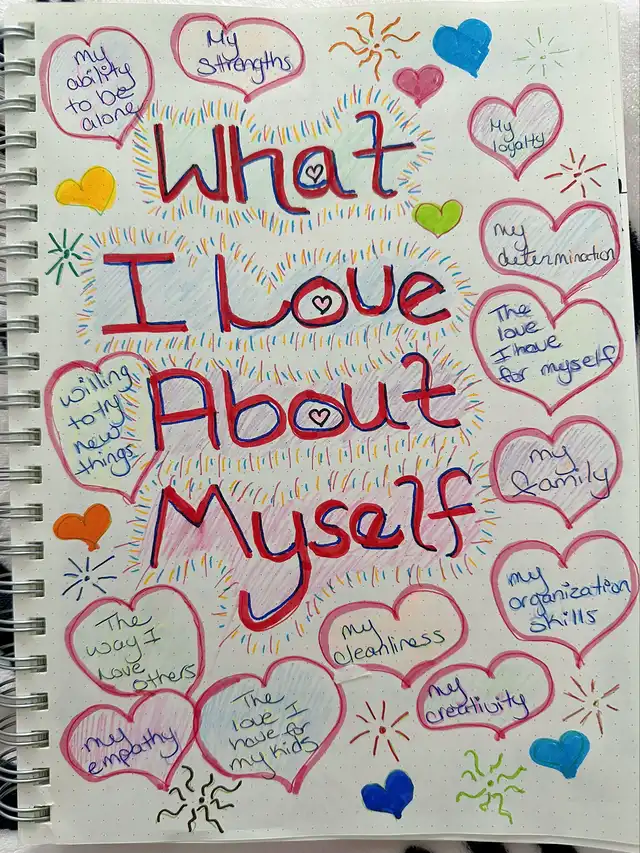 my
ability
to be
alone
My
Strengths
My
loyalty
What
I Love
About
Myself
my
determination
The
love
I have
for myself
willing
to try
new
things
my
family
my
organization
skills
The
way I
love
others
my
cleanliness
my
creativity
my
empathy
The
love I
have for
my kids